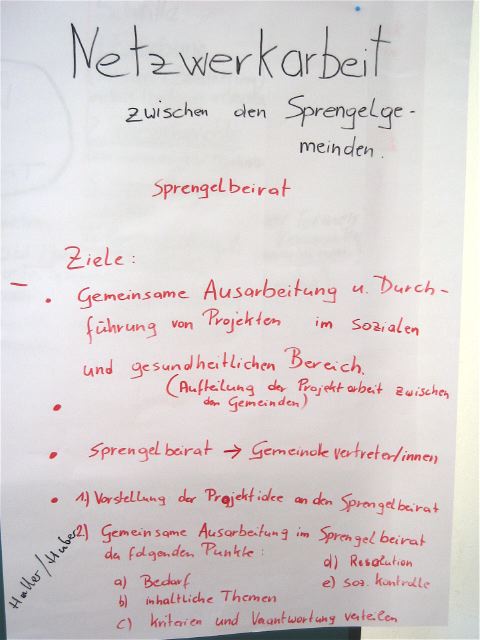 Netzwerkarbeit
zwischen den Sprengelge-
meinden.
Sprengelbeirat
Ziele:
– • Gemeinsame Ausarbeitung u. Durch-
führung von Projekten im sozialen
und gesundheitlichen Bereich.
(Aufteilung der Projektarbeit zwischen
den Gemeinden)
•
• Sprengelbeirat → Gemeindevertreter/innen
• 1) Vorstellung der Projektidee an den Sprengelbeirat
2) Gemeinsame Ausarbeitung im Sprengelbeirat
da folgenden Punkte:
a) Bedarf
b) inhaltliche Themen
c) Kriterien und Verantwortung verteilen
d) Resolution
e) soz. Kontrolle
Haller/Huber